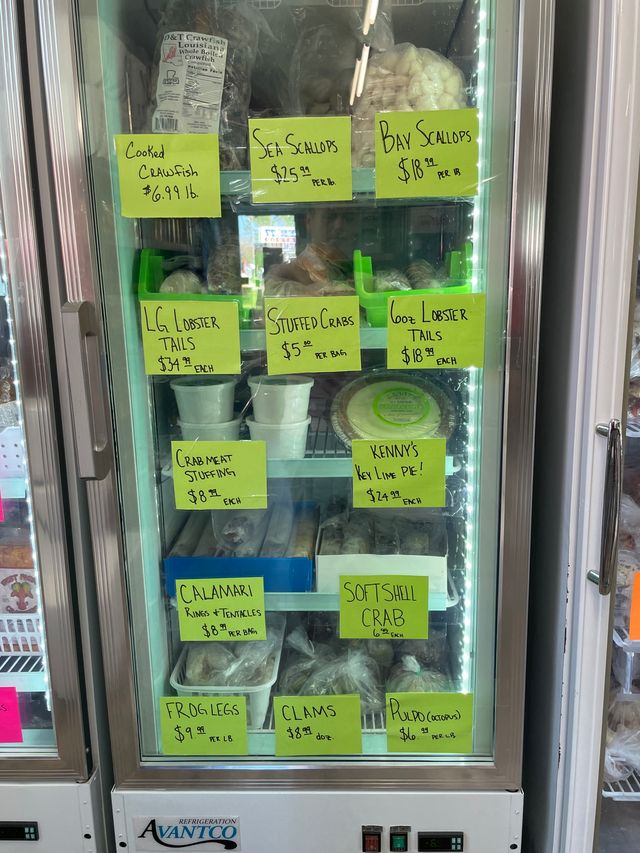 D&T Crawfish
Louisiana
Whole Boiled
Crawfish
Cooked
CRAWFISH
$6.99 lb.
SEA SCALLOPS
$25.99 PER lb.
BAY SCALLOPS
$18.99 PER lb
LG LOBSTER
TAILS
$34.99 EACH
STUFFED CRABS
$5.00 PER BAG
6oz LOBSTER
TAILS
$18.99 EACH
CRAB MEAT
STUFFING
$8.99 EACH
KENNY'S
KEY LIME PIE!
$24.99 EACH
CALAMARI
RINGS + TENTACLES
$8.99 PER BAG
SOFTSHELL
CRAB
6.99 EACH
FROG LEGS
$9.99 PER LB
CLAMS
$8.99 doz.
PULPO (OCTOPUS)
$16.99 PER LB
REFRIGERATION
AVANTCO